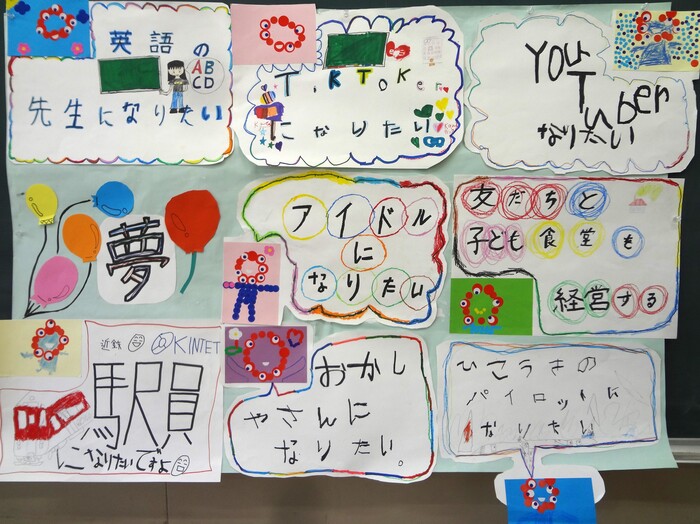 英語の
ABCD
先生になりたい
TikToker
になりたい
YouTuber
なりたい
夢
アイドル
に
なりたい
友だちと
子ども食堂も
経営する
近鉄 KINTET
駅員
になりたいですよ
おかし
やさんに
なりたい。
ひこうきの
パイロットに
なりたい